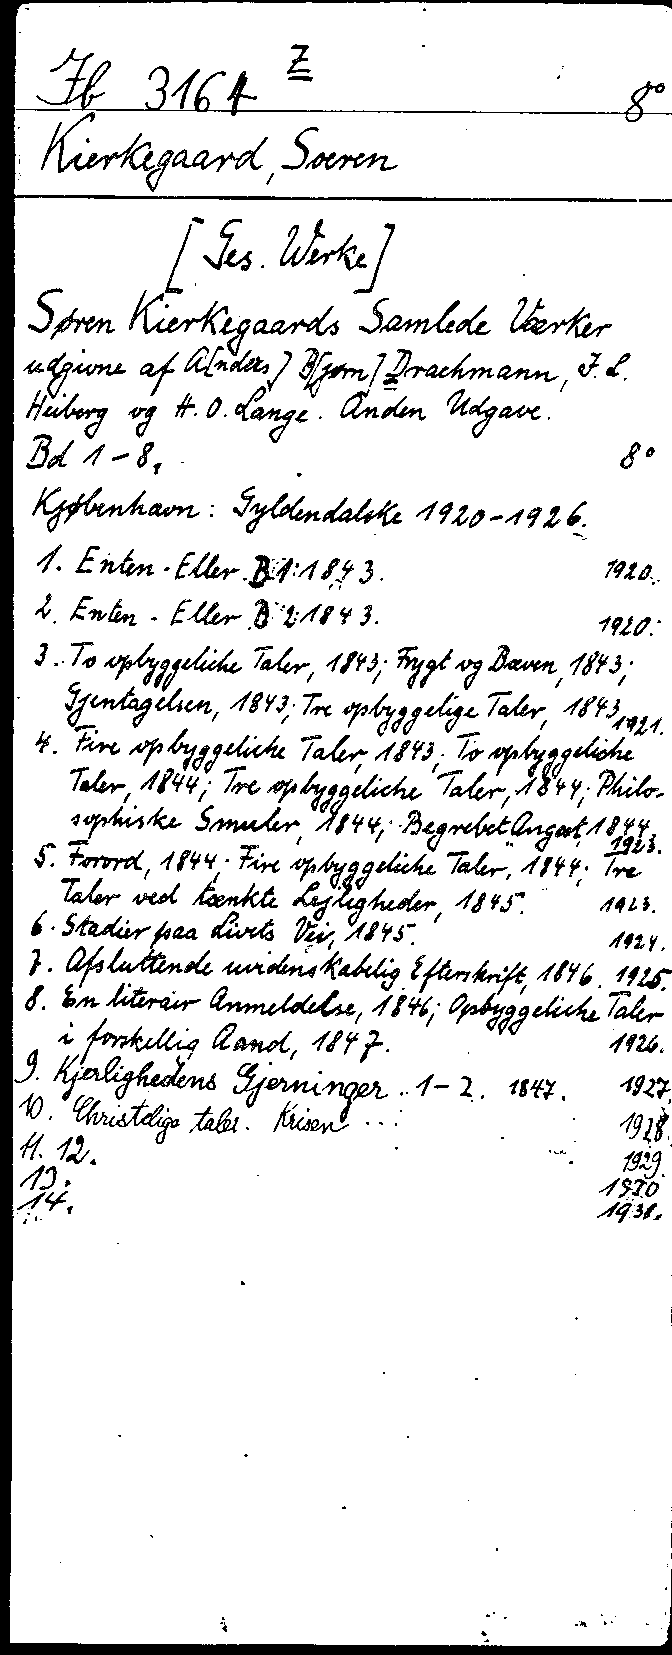 Jb 3164 Z 8°
Kierkegaard, Soeren
[Ges. Werke]
Søren Kierkegaards Samlede Værker
udgivne af A[nders] B[jørn] Drachmann, J. L.
Heiberg og H. O. Lange. Anden Udgave.
Bd 1-8. 8°
Kjøbenhavn: Gyldendalske 1920-1926.
1. Enten-Eller B 1: 1843. 1920.
2. Enten-Eller B 2: 1843. 1920.
3. To opbyggeliche Taler, 1843; Frygt og Bæven, 1843;
Gjentagelsen, 1843; Tre opbyggelige Taler, 1843 1921.
4. Fire opbyggeliche Taler, 1843; To opbyggeliche
Taler, 1844; Tre opbyggeliche Taler, 1844; Philo-
sophiske Smuler, 1844; Begrebet Angest, 1844. 1923.
5. Forord, 1844; Fire opbyggeliche Taler, 1844; Tre
Taler ved tænkte Lejligheder, 1845. 1923.
6. Stadier paa Livets Vei, 1845. 1924.
7. Afsluttende uvidenskabelig Efterskrift, 1846. 1925.
8. En literair Anmeldelse, 1846; Opbyggeliche Taler
i forskellig Aand, 1847. 1926.
9. Kjerlighedens Gjerninger. 1-2. 1847. 1927.
10. Christelige taler. Krisen ... 1928.
11. 12. 1929.
13. 1930
14. 1931.